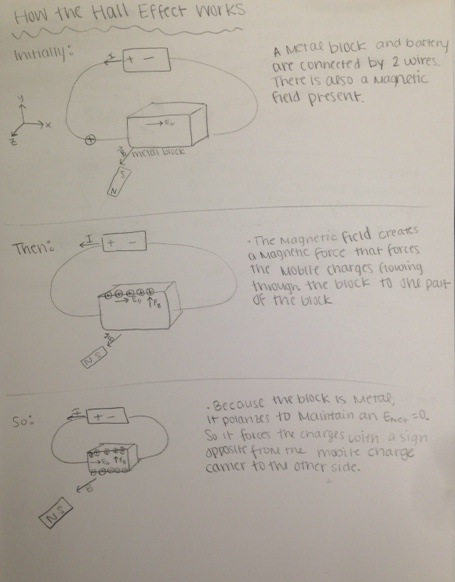 How the Hall Effect Works
Initially:
I
+ -
A metal block and battery
are connected by 2 wires.
There is also a magnetic
field present.
y
x
z
+
metal block
S
N
Then:
I
+ -
· The magnetic field creates
a magnetic force that forces
the mobile charges flowing
through the block to one part
of the block
N S
So:
I
+ -
· Because the block is metal,
it polarizes to maintain an Enet = 0.
So it forces the charges with a sign
opposite from the mobile charge
carrier to the other side.
B
N S